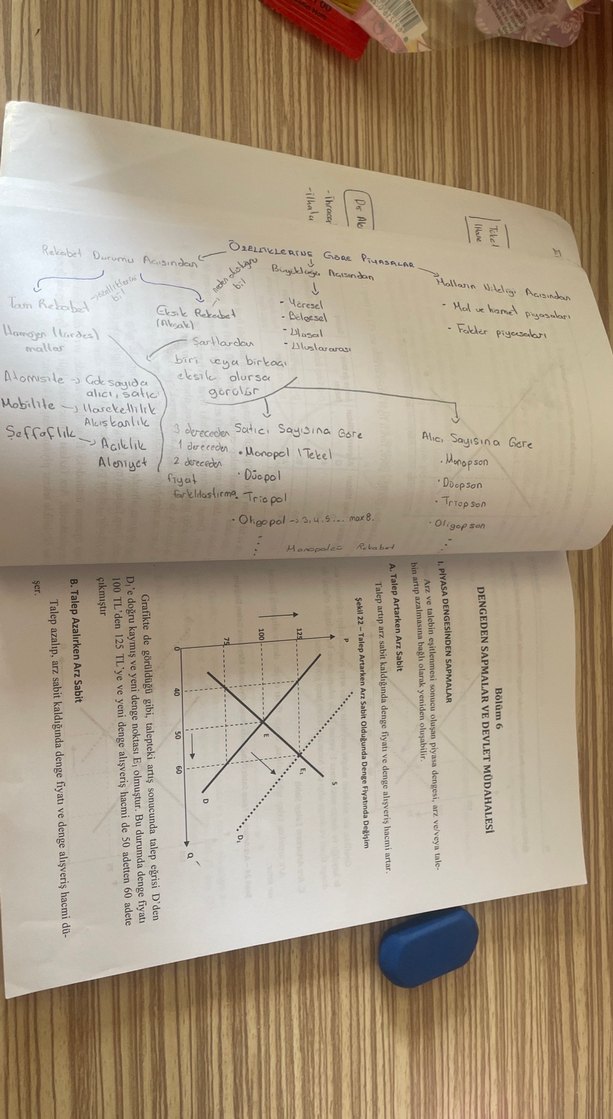 Tekel
Dış
- ihracat
- ithalat
ÖZELLİKLERİNE GÖRE PİYASALAR
Rekabet Durumu Açısından
Büyüklüğü Açısından
Malların Niteliği Açısından
- Mal ve hizmet piyasaları
- Faktör piyasaları
- Yöresel
- Bölgesel
- Ulusal
- Uluslararası
Tam Rekabet
özelliklerini bil
Eksik Rekabet
(Aksak)
neden olduğunu bil
Homojen (türdeş)
mallar
Atomisite → Çok sayıda
alıcı, satıcı
Mobilite → Hareketlilik
Akışkanlık
Şeffaflık → Açıklık
Aleniyet
Şartlardan
biri veya birkaçı
eksik olursa
görülür
Satıcı Sayısına Göre
3 dereceden
1 dereceden
2 dereceden
fiyat
farklılaştırma
• Monopol | Tekel
• Düopol
• Triopol
• Oligopol → 3, 4, 5 ... max 8.
Alıcı Sayısına Göre
• Monopson
• Düopson
• Triopson
• Oligopson
Monopolcü Rekabet
Bölüm 6
DENGEDEN SAPMALAR VE DEVLET MÜDAHALESİ
I. PİYASA DENGESİNDEN SAPMALAR
Arz ve talebin eşitlenmesi sonucu oluşan piyasa dengesi, arz ve/veya tale-
bin artıp azalmasına bağlı olarak yeniden oluşabilir.
A. Talep Artarken Arz Sabit
Talep artıp arz sabit kaldığında denge fiyatı ve denge alışveriş hacmi artar.
Şekil 22 – Talep Artarken Arz Sabit Olduğunda Denge Fiyatında Değişim
P
125
100
75
0
40
50
60
Q
S
E₁
E
D
D₁
Grafikte de görüldüğü gibi, talepteki artış sonucunda talep eğrisi D'den
D₁'e doğru kaymış ve yeni denge noktası E₁ olmuştur. Bu durumda denge fiyatı
100 TL'den 125 TL'ye ve yeni denge alışveriş hacmi de 50 adetten 60 adete
çıkmıştır
B. Talep Azalırken Arz Sabit
Talep azalıp, arz sabit kaldığında denge fiyatı ve denge alışveriş hacmi dü-
şer.